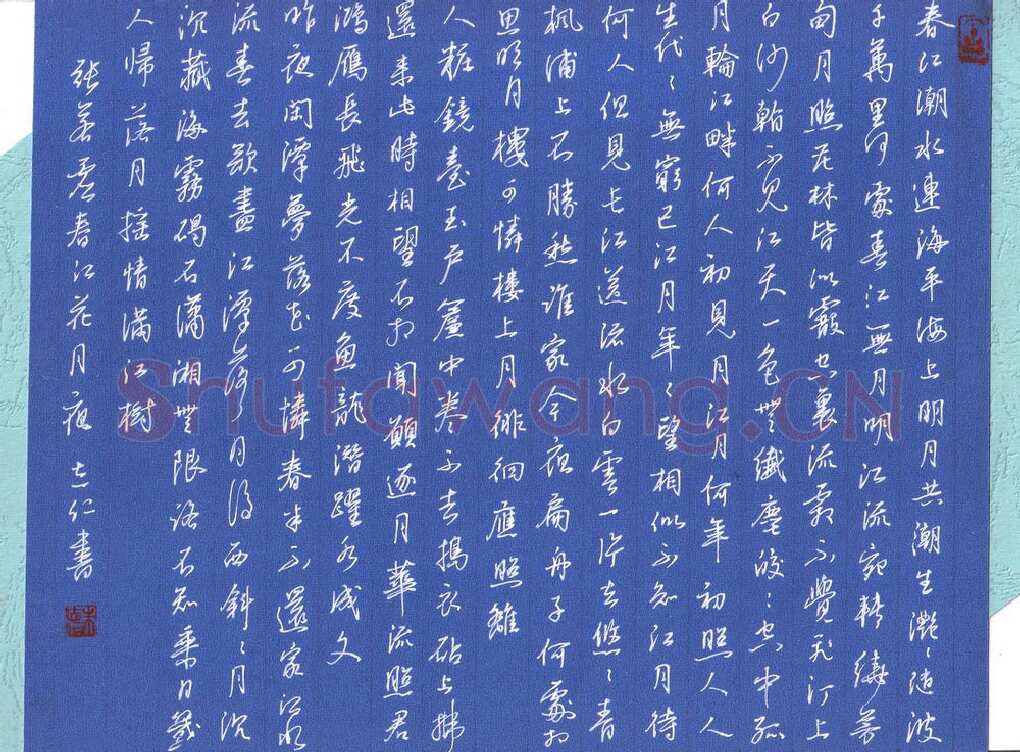 春江潮水連海平海上明月共潮生灩〻隨波
千萬里何處春江無月明江流宛轉繞芳
甸月照花林皆似霰空裏流霜不覺飛汀上
白沙看不見江天一色無纖塵皎〻空中孤
月輪江畔何人初見月江月何年初照人人
生代〻無窮已江月年〻望相似不知江月待
何人但見長江送流水白雲一片去悠〻青
楓浦上不勝愁誰家今夜扁舟子何處相
思明月樓可憐樓上月徘徊應照離
人粧鏡臺玉戶簾中卷不去搗衣砧上拂
還來此時相望不相聞願逐月華流照君
鴻雁長飛光不度魚龍潛躍水成文
昨夜閑潭夢落花可憐春半不還家江水
流春去欲盡江潭落月復西斜〻月沉
沉藏海霧碣石瀟湘無限路不知乘月幾
人歸落月搖情滿江樹
張若虛春江花月夜 志仁書
Shufawang.CN